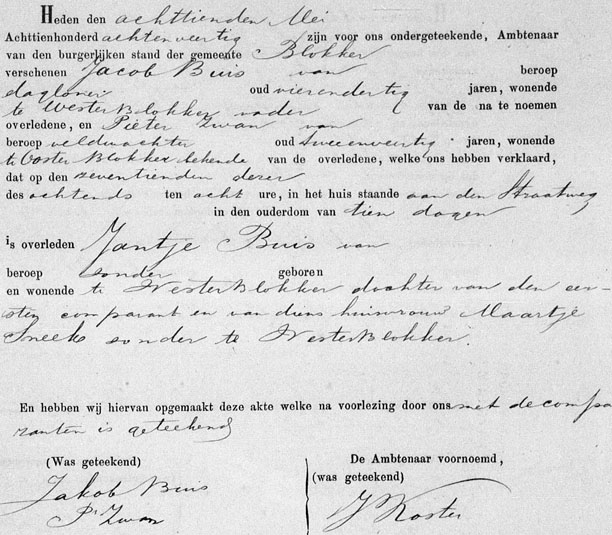 Heden den achttienden Mei
Achttienhonderd achtenveertig zijn voor ons ondergeteekende, Ambtenaar
van den burgerlijken stand der gemeente Blokker
verschenen Jacob Buis van beroep
daglooner oud vierendertig jaren, wonende
te WesterBlokker vader van de na te noemen
overledene, en Pieter Zwan van
beroep veldwachter oud tweeenveertig jaren, wonende
te Ooster Blokker bekende van de overledene, welke ons hebben verklaard,
dat op den zeventienden dezer
des achtends ten acht ure, in het huis staande aan den Straatweg
in den ouderdom van tien dagen
is overleden Jantje Buis van
beroep zonder geboren
en wonende te WesterBlokker dochter van den eer-
sten comparant en van diens huisvrouw Maartje
Sneek zonder te WesterBlokker.
En hebben wij hiervan opgemaakt deze akte welke na voorlezing door ons met de compa
ranten is geteekend
(Was geteekend)
De Ambtenaar voornoemd,
(was geteekend)
Jakob Buis
Pr Zwan
J Koster